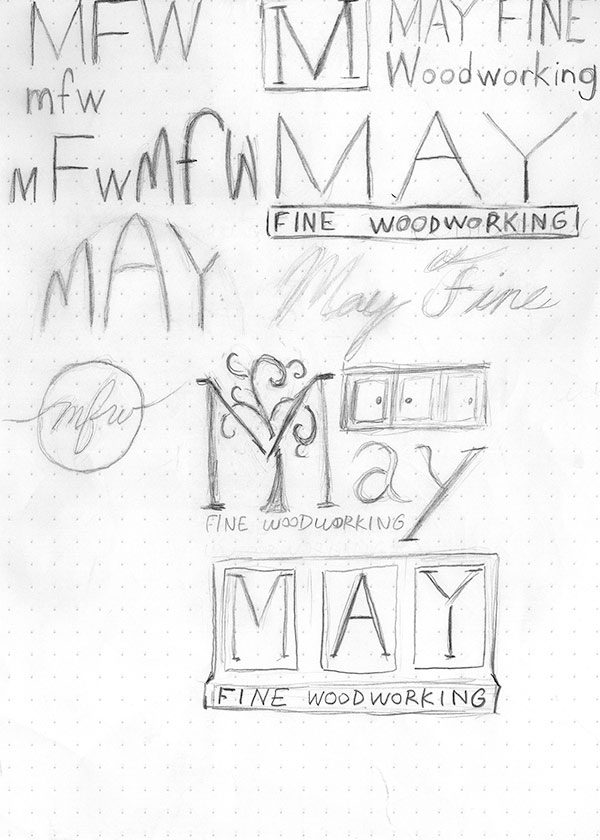 MFW
M
MAY FINE
Woodworking
mfw
mFw
MfW
MAY
FINE WOODWORKING
MAY
May Fine
mfw
May
FINE WOODWORKING
MAY
FINE WOODWORKING